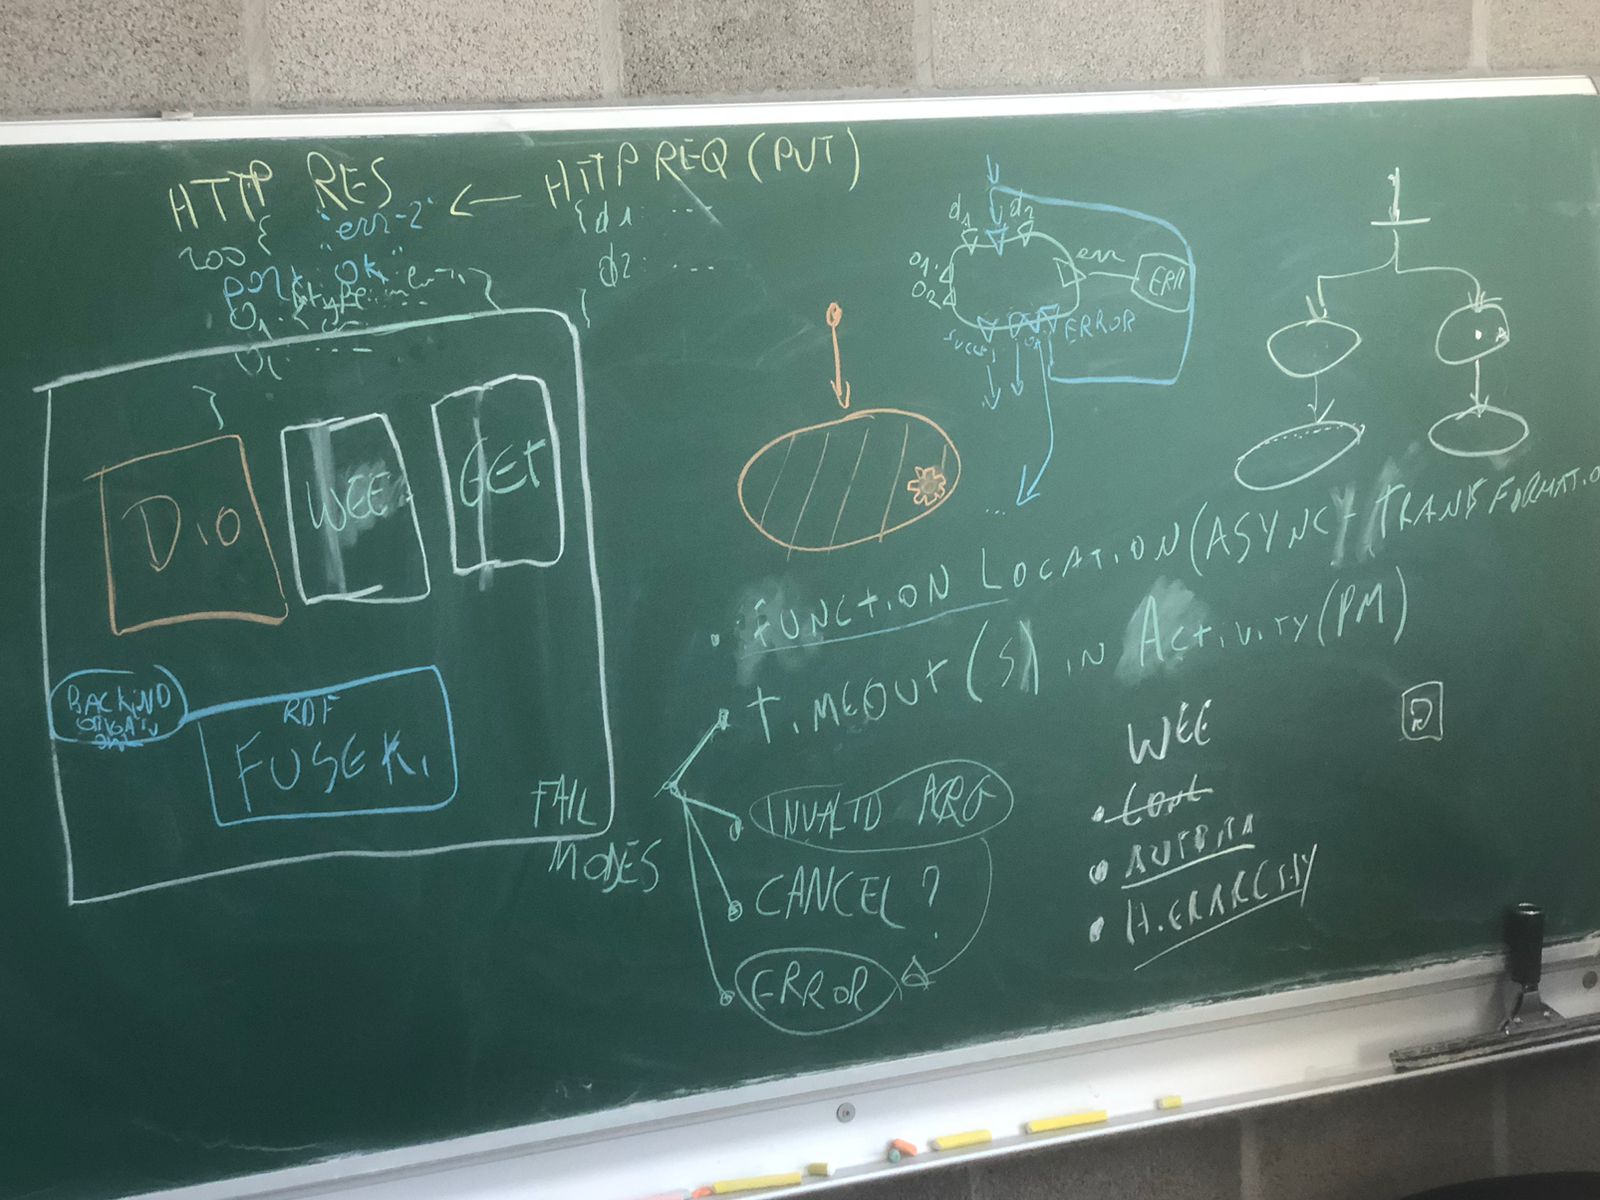 HTTP RES ← HTTP REQ (PUT)
200 { "err-2"
{ d1: ....
port: ok"
d2: ....
}
}
d1 d2
o1
o2
err
ERR
ERROR
...
DiO
WEE
GET
• FUNCTION LOCATION (ASYNC + TRANSFORMATIO
TIMEOUT(S) IN ACTIVITY (PM)
BACKEND
RDF
FUSEKi
FAIL
MODES
INVALID ARG
CANCEL?
ERROR
WEE
• HiERARCHY